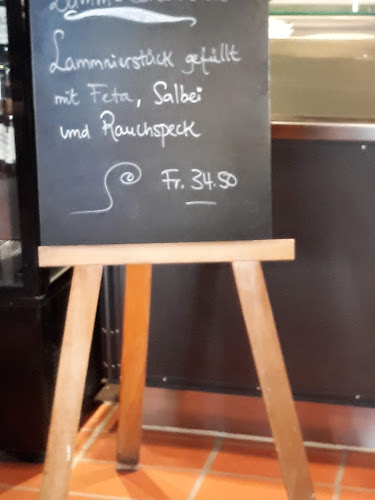 Lammnierstück gefüllt
mit Feta, Salbei
und Rauchspeck
Fr. 34.50